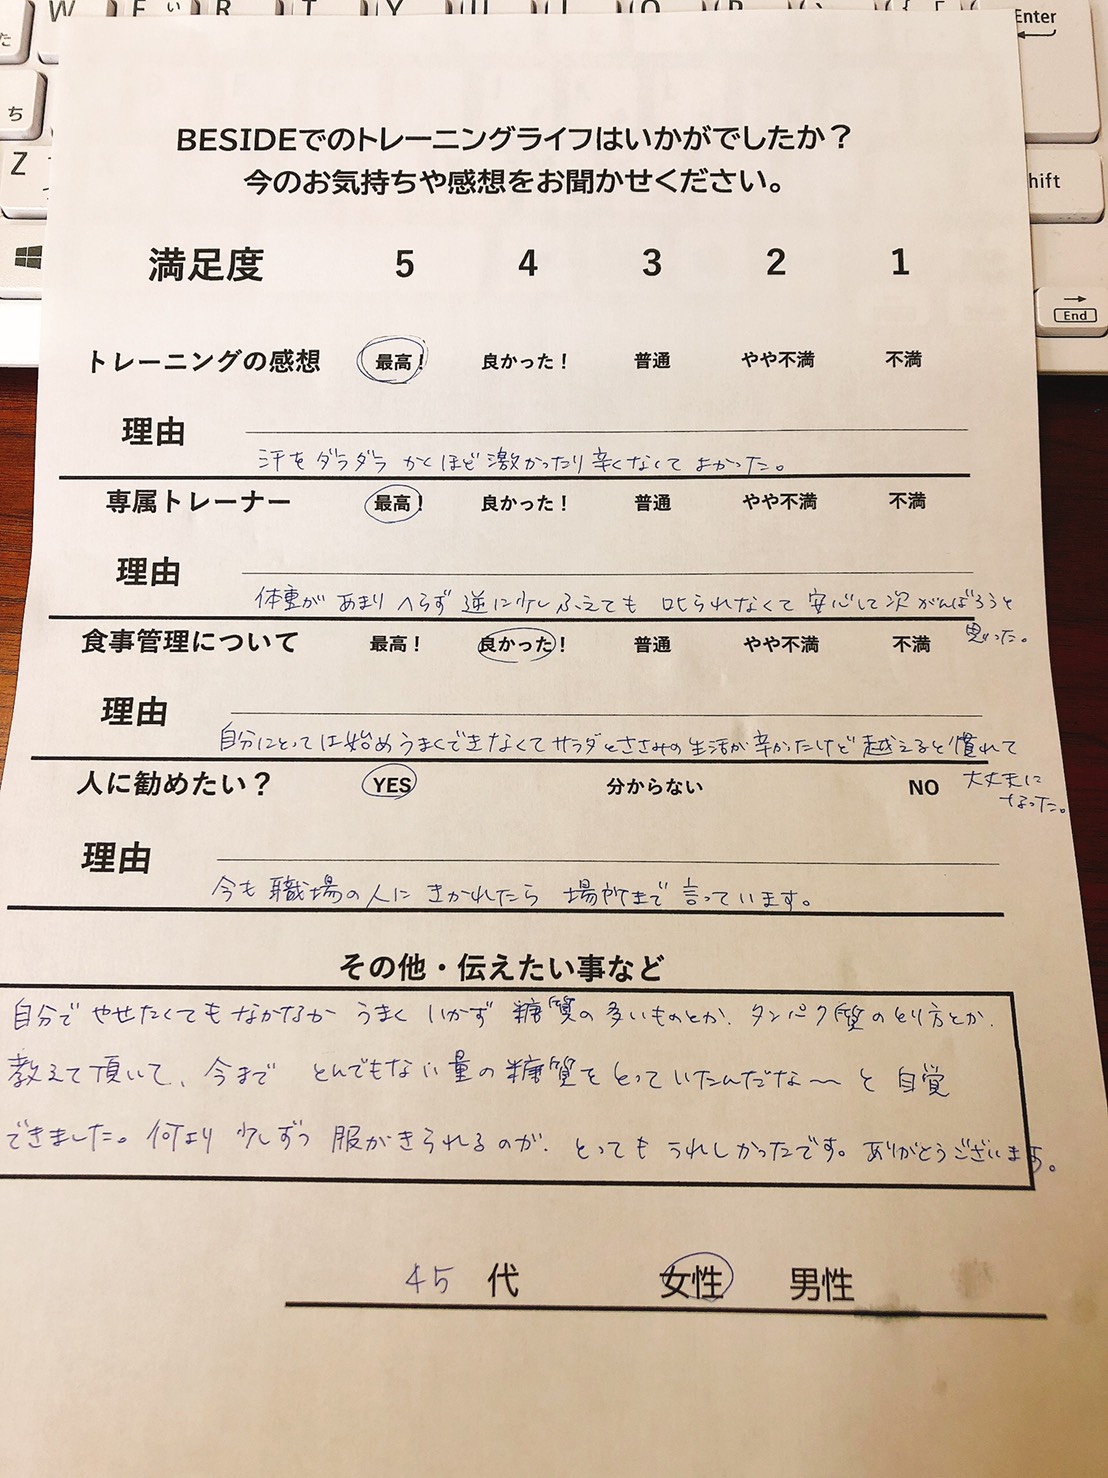 W
R
T
Y
Enter
た
ち
Z
hift
End
BESIDEでのトレーニングライフはいかがでしたか？
今のお気持ちや感想をお聞かせください。
満足度 5 4 3 2 1
トレーニングの感想 最高！ 良かった！ 普通 やや不満 不満
理由
汗をダラダラかくほど激かったり辛くなくてよかった。
専属トレーナー 最高！ 良かった！ 普通 やや不満 不満
理由
体重があまりへらず逆に少しふえても叱られなくて安心して次がんばろうと
思った。
食事管理について 最高！ 良かった！ 普通 やや不満 不満
理由
自分にとっては始めうまくできなくてサラダとささみの生活が辛かったけど越えると慣れて
大丈夫に
なった。
人に勧めたい？ YES 分からない NO
理由
今も職場の人にきかれたら場所まで言っています。
その他・伝えたい事など
自分でやせたくてもなかなかうまくいかず糖質の多いものとか、タンパク質のとり方とか、
教えて頂いて、今までとんでもない量の糖質をとっていたんだな〜と自覚
できました。何より少しずつ服がきられるのが、とってもうれしかったです。ありがとうございます。
45代 女性 男性